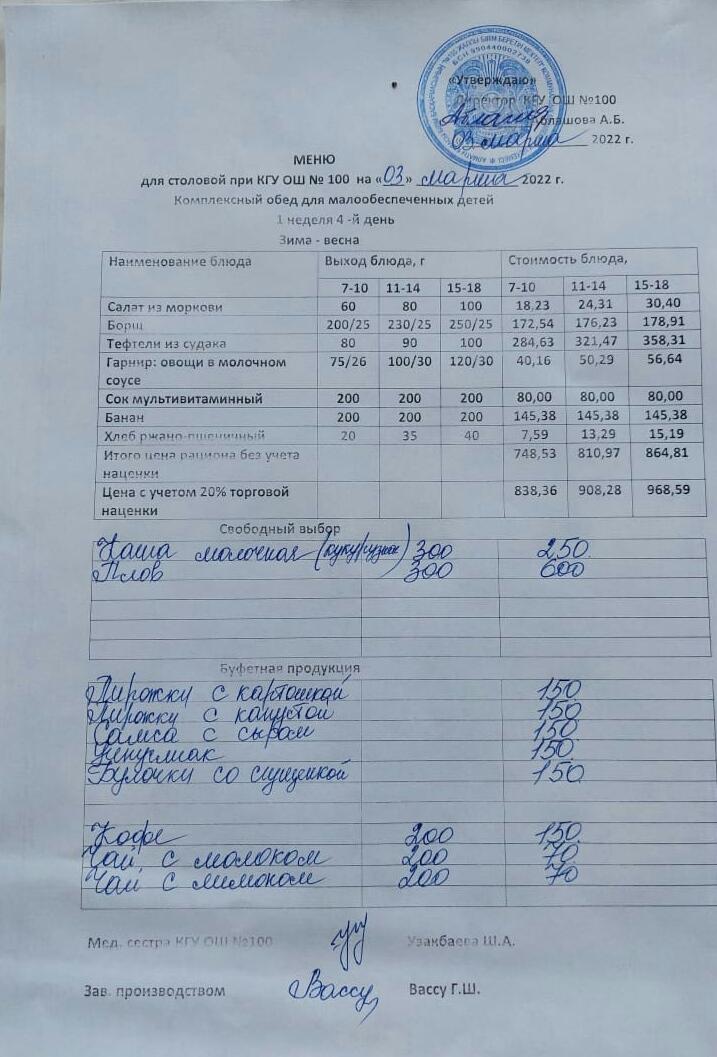 «Утверждаю»
Директор КГУ ОШ №100
Аблашова А.Б.
03 марта 2022 г.
МЕНЮ
для столовой при КГУ ОШ № 100 на «03» марта 2022 г.
Комплексный обед для малообеспеченных детей
1 неделя 4 -й день
Зима - весна
Наименование блюда Выход блюда, г Стоимость блюда,
7-10 11-14 15-18 7-10 11-14 15-18
Салат из моркови 60 80 100 18,23 24,31 30,40
Борщ 200/25 230/25 250/25 172,54 176,23 178,91
Тефтели из судака 80 90 100 284,63 321,47 358,31
Гарнир: овощи в молочном 75/26 100/30 120/30 40,16 50,29 56,64
соусе
Сок мультивитаминный 200 200 200 80,00 80,00 80,00
Банан 200 200 200 145,38 145,38 145,38
Хлеб ржано-пшеничный 20 35 40 7,59 13,29 15,19
Итого цена рациона без учета 748,53 810,97 864,81
наценки
Цена с учетом 20% торговой 838,36 908,28 968,59
наценки
Свободный выбор
Каша молочная 300 250
Плов 300 600
Буфетная продукция
Пирожки с картошкой 150
Пирожки с капустой 150
Самса с сыром 150
150
Булочки со сгущенкой 150
Кофе 200 150
Чай с молоком 200 70
Чай с лимоном 200 70
Мед. сестра КГУ ОШ №100 Узакбаева Ш.А.
Зав. производством Вассу Вассу Г.Ш.